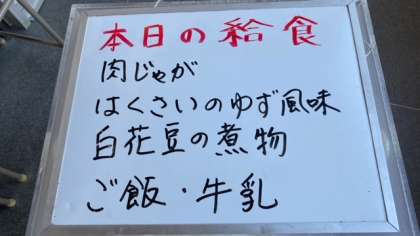 本日の給食
肉じゃが
はくさいのゆず風味
白花豆の煮物
ご飯・牛乳